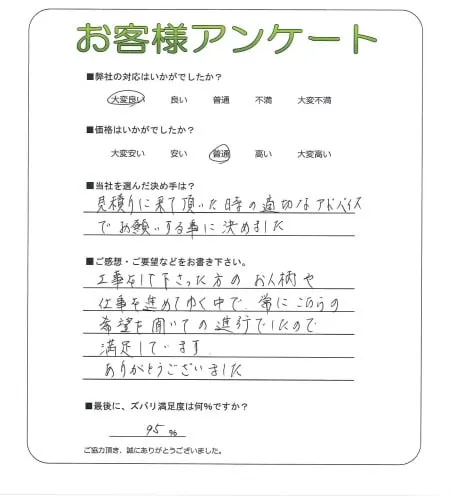 お客様アンケート
■弊社の対応はいかがでしたか?
大変良い 良い 普通 不満 大変不満
■価格はいかがでしたか?
大変安い 安い 普通 高い 大変高い
■当社を選んだ決め手は?
見積りに来て頂いた時の適切なアドバイス
でお願いする事に決めました
■ご感想・ご要望などをお書き下さい。
工事をして下さった方のお人柄や
仕事を進めてゆく中で、常にこちらの
希望を聞いての進行でしたので
満足しています
ありがとうございました
■最後に、ズバリ満足度は何%ですか?
95 %
ご協力頂き、誠にありがとうございました。